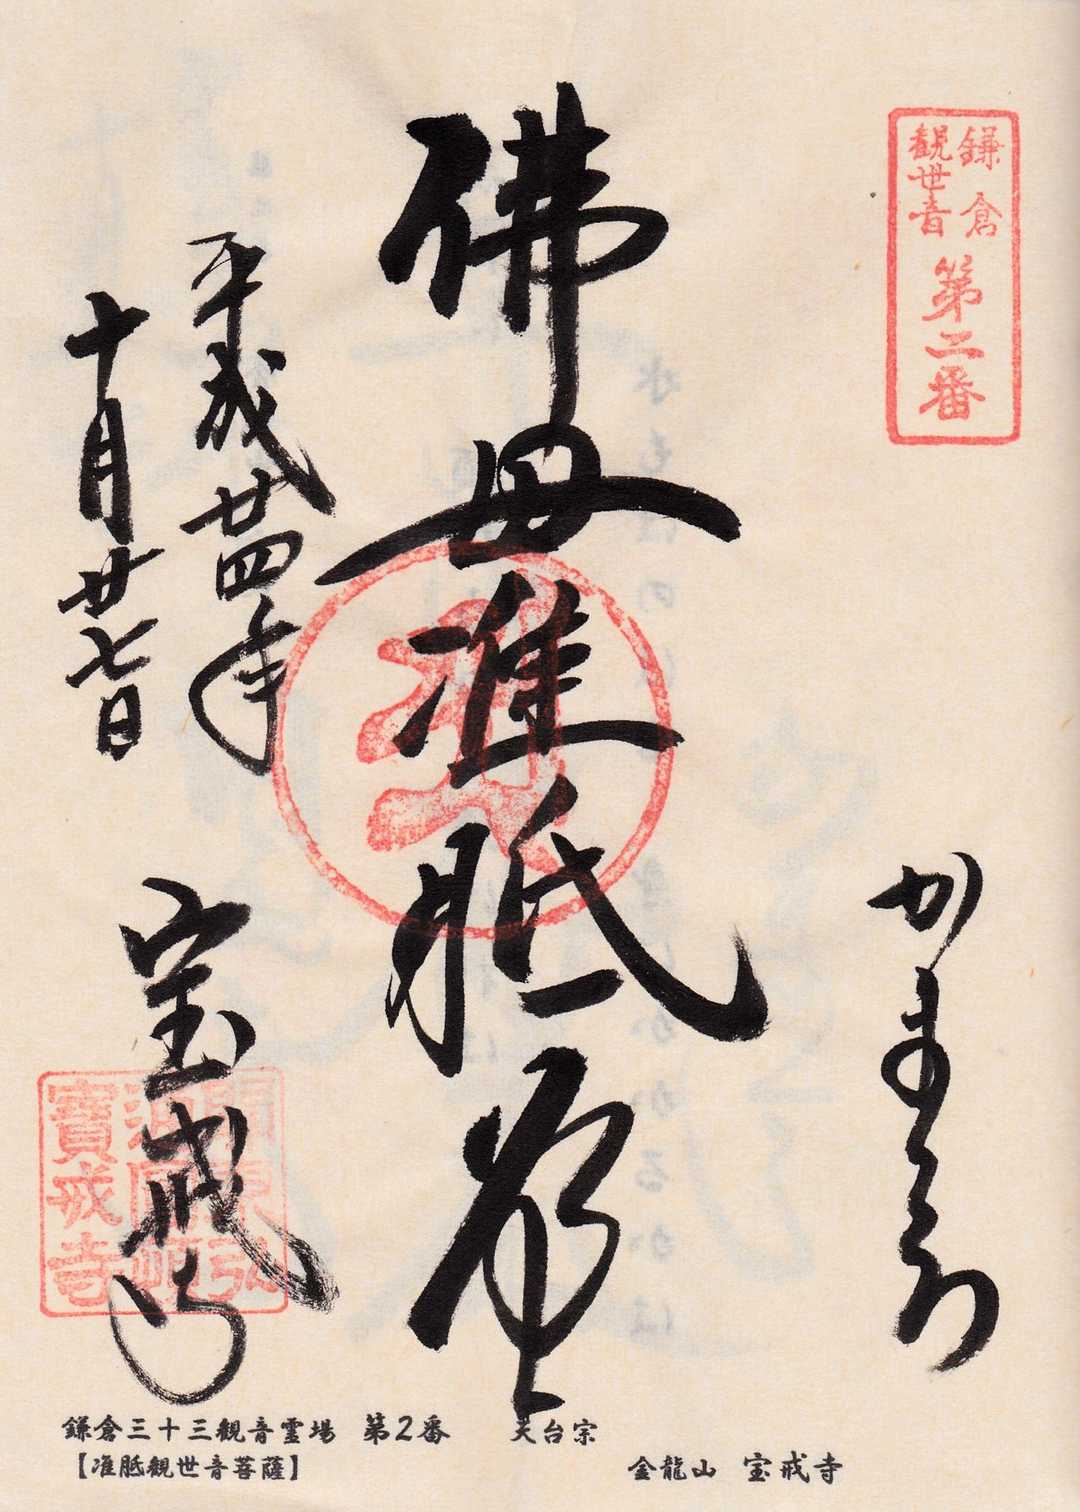 鎌倉
観世音
第二番
かまくら
佛母准胝尊
平成廿四年
十月廿七日
宝戒寺
關東弘
通圓頓
寶戒寺
鎌倉三十三観音霊場 第2番 天台宗
【准胝観世音菩薩】 金龍山 宝戒寺